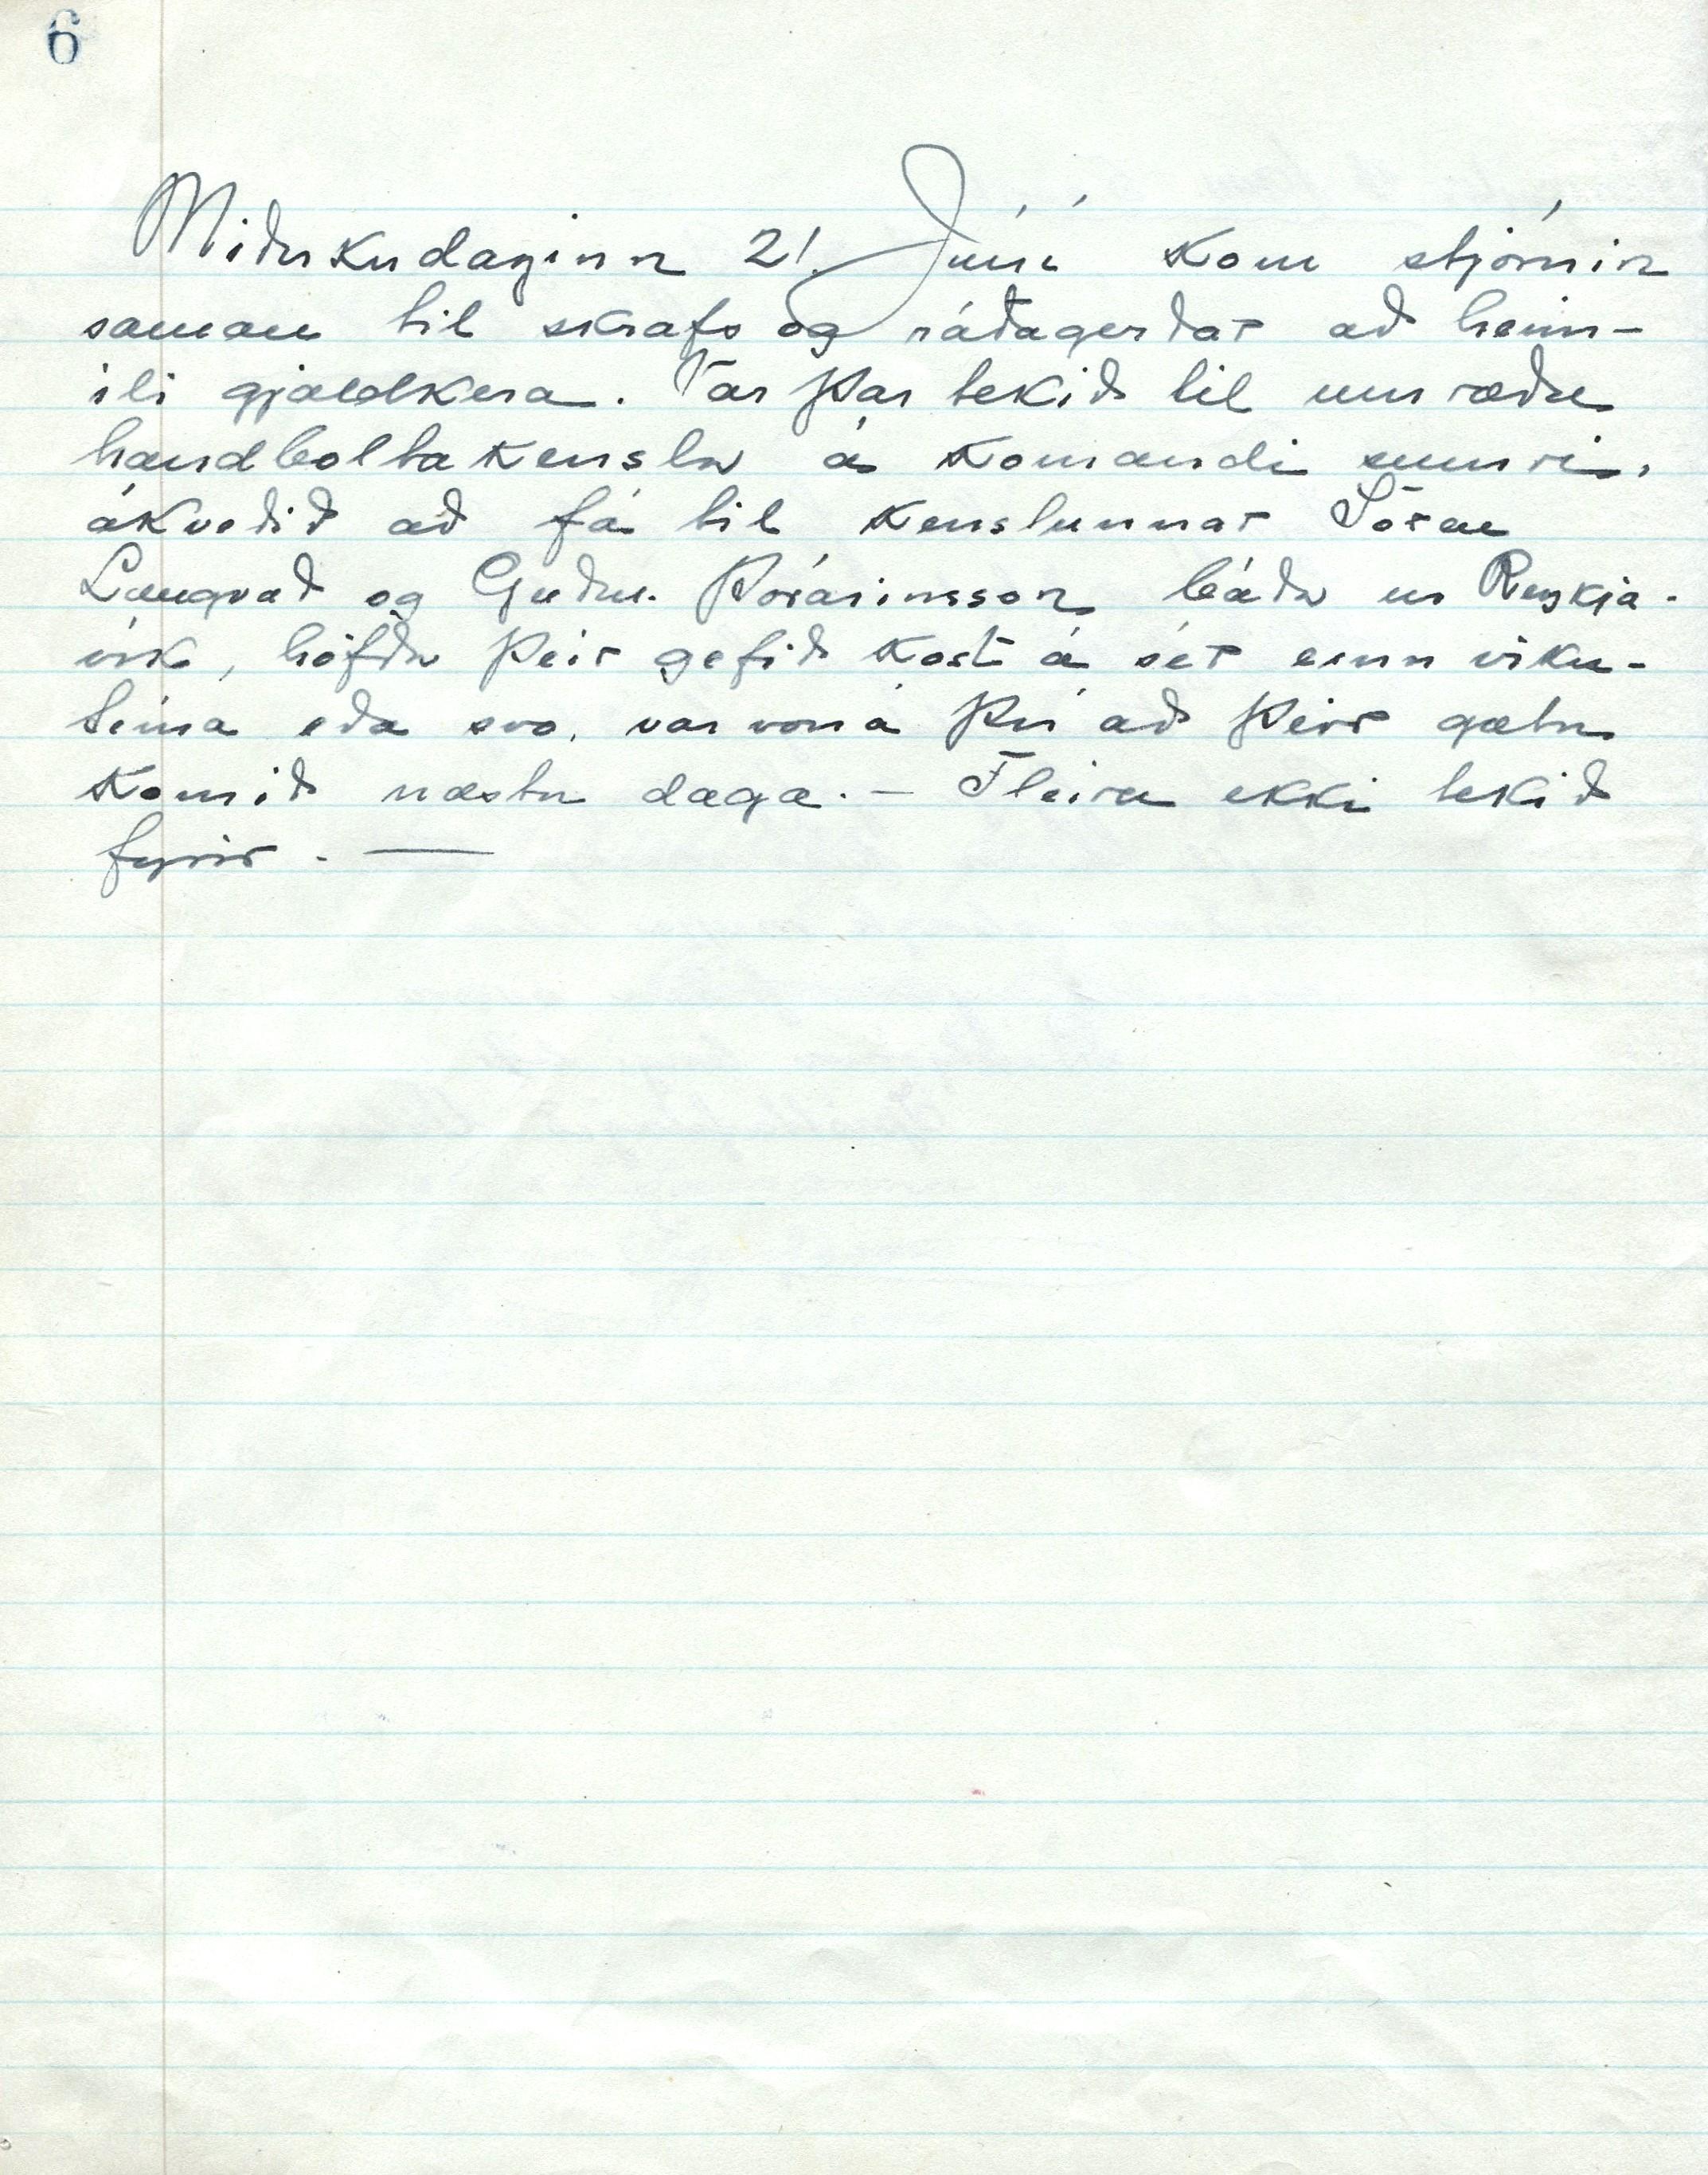 6
Miðvikudaginn 21. Júní kom stjórnin
saman til skrafs og ráðagerðar að heim-
ili gjaldkera. Var þar tekið til umræðu
handboltakensla á komandi sumri,
ákveðið að fá til kenslunnar Sören
Langvad og Guðm. Þórarinsson báða úr Reykja-
vík, höfðu þeir gefið kost á sér einn viku-
tíma eða svo, var von á því að þeir gætu
komið næstu daga. - Fleira ekki tekið
fyrir. —